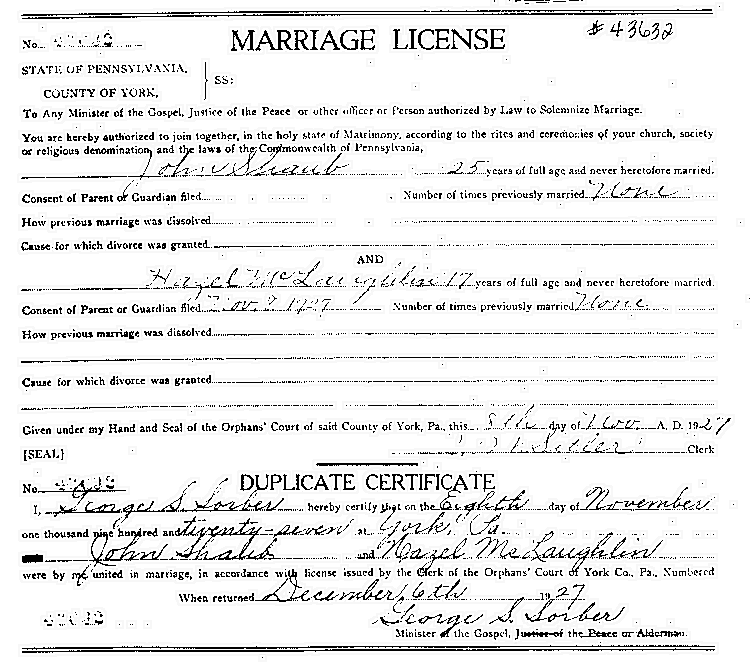 # 43632
No.
MARRIAGE LICENSE
STATE OF PENNSYLVANIA,
COUNTY OF YORK,
SS:
To Any Minister of the Gospel, Justice of the Peace or other officer or Person authorized by Law to Solemnize Marriage.
You are hereby authorized to join together, in the holy state of Matrimony, according to the rites and ceremonies of your church, society
or religious denomination, and the laws of the Commonwealth of Pennsylvania,
John Shaub 25 years of full age and never heretofore married.
Consent of Parent or Guardian filed Number of times previously married None
How previous marriage was dissolved
Cause for which divorce was granted
AND
Hazel McLaughlin 17 years of full age and never heretofore married.
Consent of Parent or Guardian filed Nov. 1927 Number of times previously married None
How previous marriage was dissolved
Cause for which divorce was granted
Given under my Hand and Seal of the Orphans' Court of said County of York, Pa., this 8th day of Nov. A. D. 1927
[SEAL] Clerk
DUPLICATE CERTIFICATE
No.
I, George S. Sorber hereby certify that on the Eighth day of November
one thousand nine hundred and twenty-seven at York, Pa.
John Shaub and Hazel McLaughlin
were by me united in marriage, in accordance with license issued by the Clerk of the Orphans' Court of York Co., Pa., Numbered
When returned December 6th 1927
George S. Sorber
Minister of the Gospel, Justice of the Peace or Alderman.